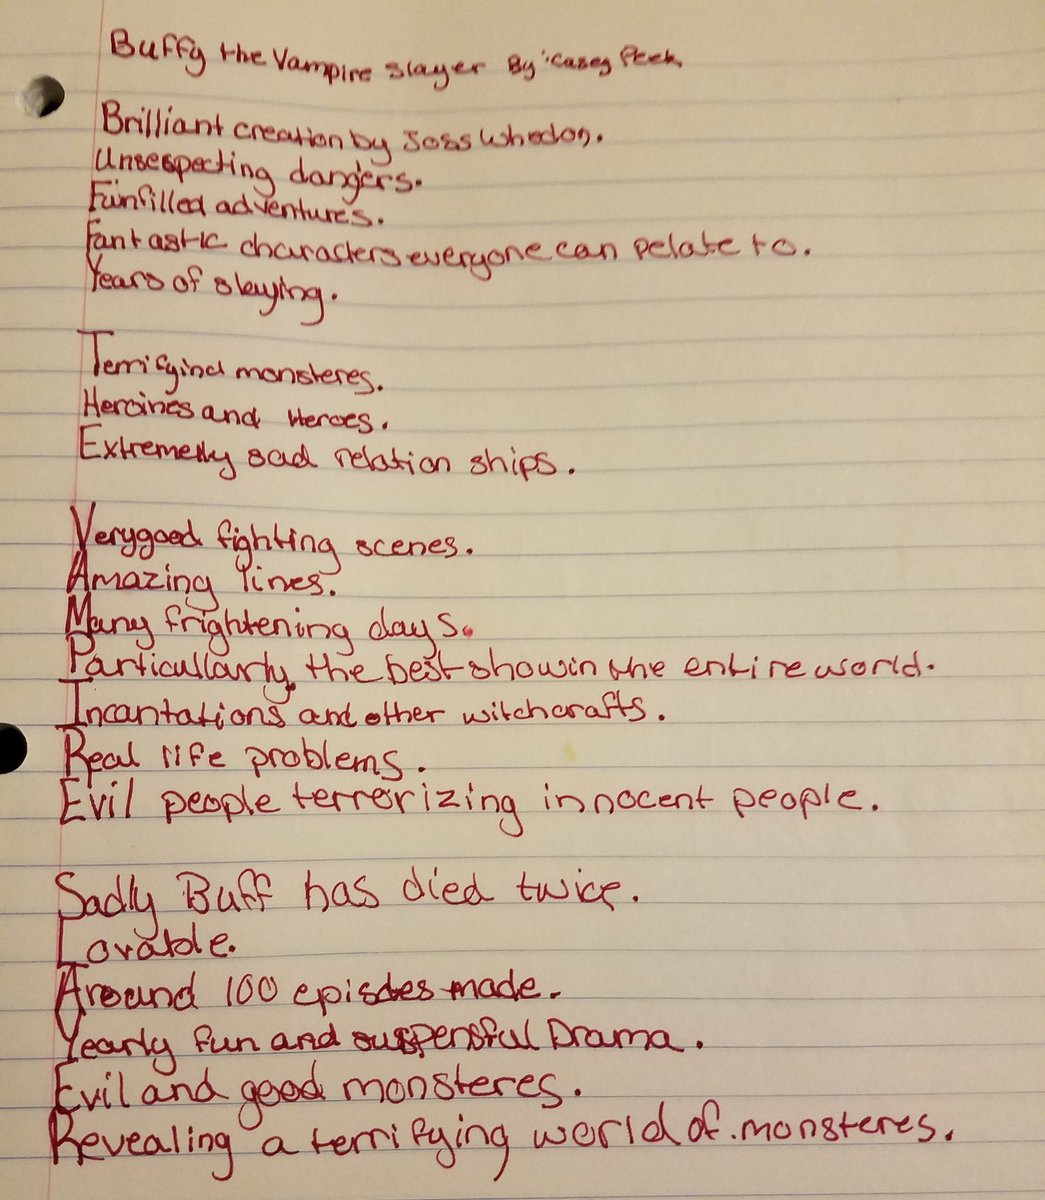 Buffy the Vampire slayer By: Casey Peek.
Brilliant creation by Joss Whedon.
Unsespecting dangers.
Funfilled adventures.
Fantastic characters everyone can relate to.
Years of slaying.
Terrifying monsteres.
Heroines and Heroes.
Extremelly sad relation ships.
Very good fighting scenes.
Amazing lines.
Many frightening days.
Particullarly, the best show in the entire world.
Incantations and other witchcrafts.
Real life problems.
Evil people terrorizing innocent people.
Sadly Buff has died twice.
Lovable.
Around 100 episodes made.
Yearly fun and suspensful Drama.
Evil and good monsteres.
Revealing a terrifying world of monsteres.